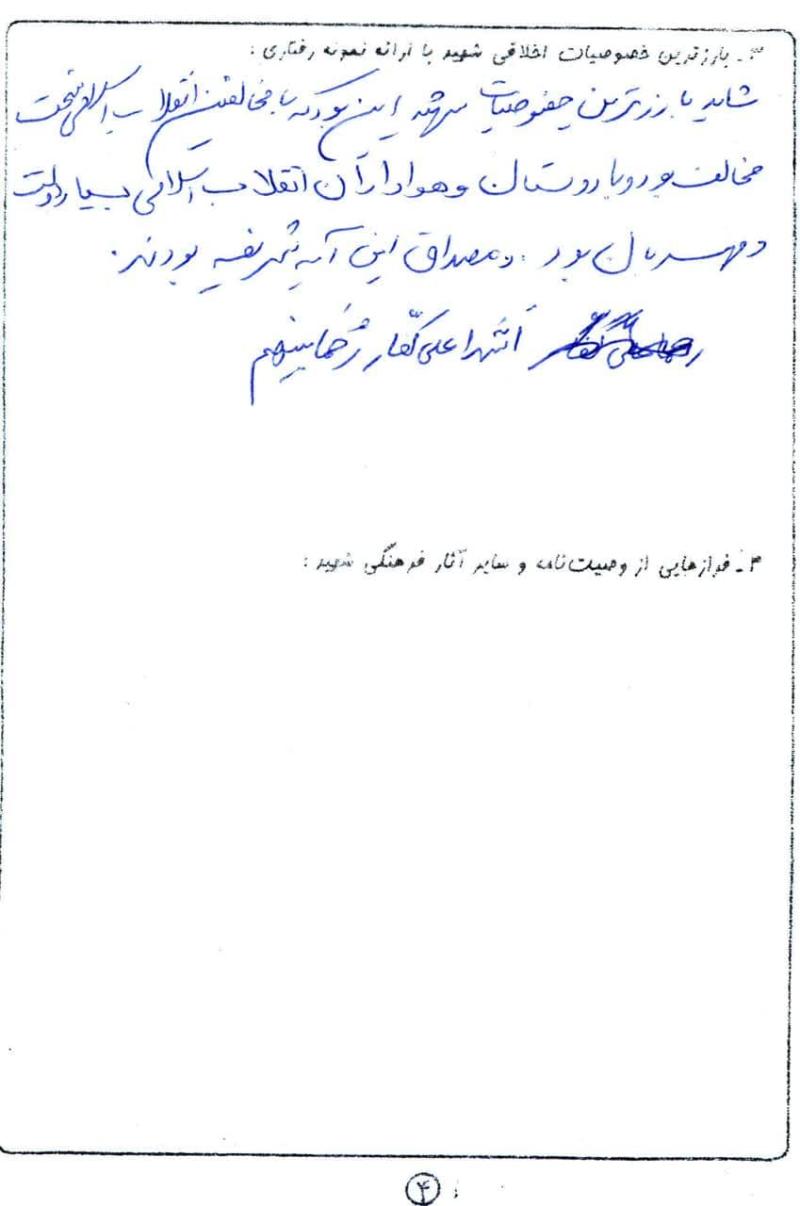 ۳ـ بارزترین خصوصیات اخلاقی شهید با ارائه نمونه رفتاری :
شاید بارزترین خصوصیات شهید این بود که با مخالفین انقلاب اسلامی سخت
مخالف بود و با دوستان و هواداران انقلاب اسلامی بسیار دوست
و مهربان بود . و مصداق این آیه شریفه بودند .
اشداء علی کفار رحما بینهم
۴ـ فرازهایی از وصیت‌نامه و سایر آثار فرهنگی شهید :
۴